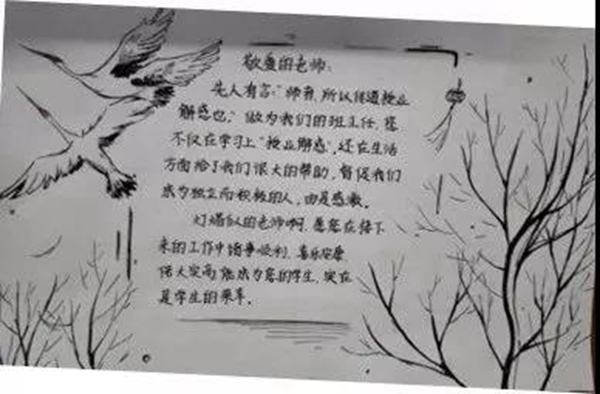 敬爱的老师:
先人有言:“师者,所以传道授业
解惑也,”做为我们的班主任,您
不仅在学习上“授业解惑”,还在生活
方面给了我们很大的帮助,督促我们
成为独立而积极的人,由是感激。
灯塔似的老师啊,愿您在接下
来的工作中诸事顺利,喜乐安康
很大荣高能成为您的学生,实在
是学生的荣幸。